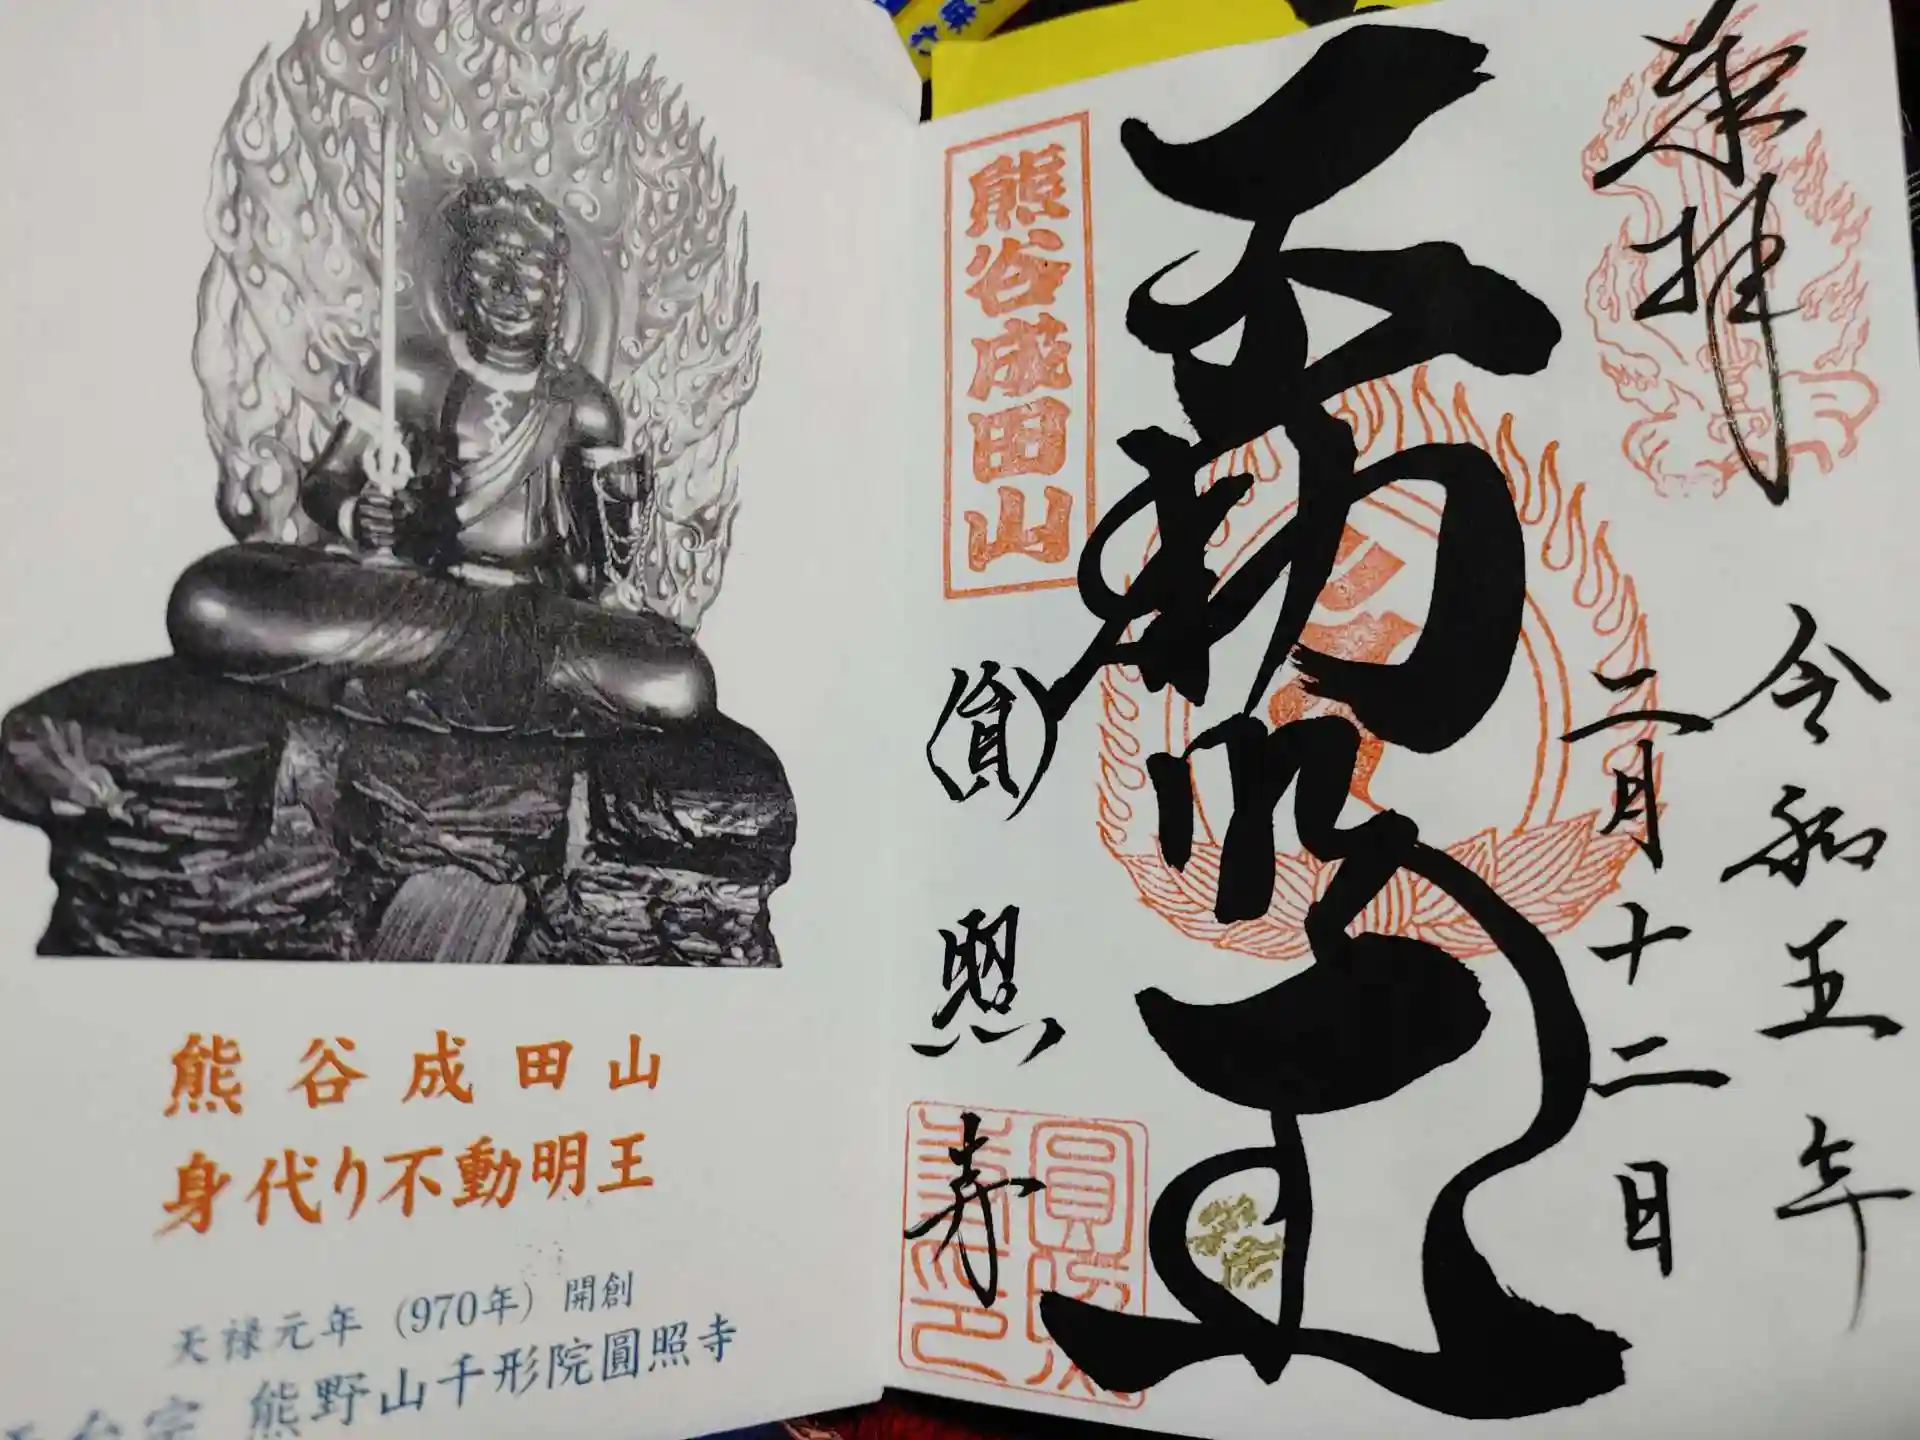 熊谷成田山
身代り不動明王
天禄元年（970年）開創
天台宗 熊野山千形院圓照寺
奉拝
令和五年
二月十二日
不動明王
熊谷成田山
圓照寺